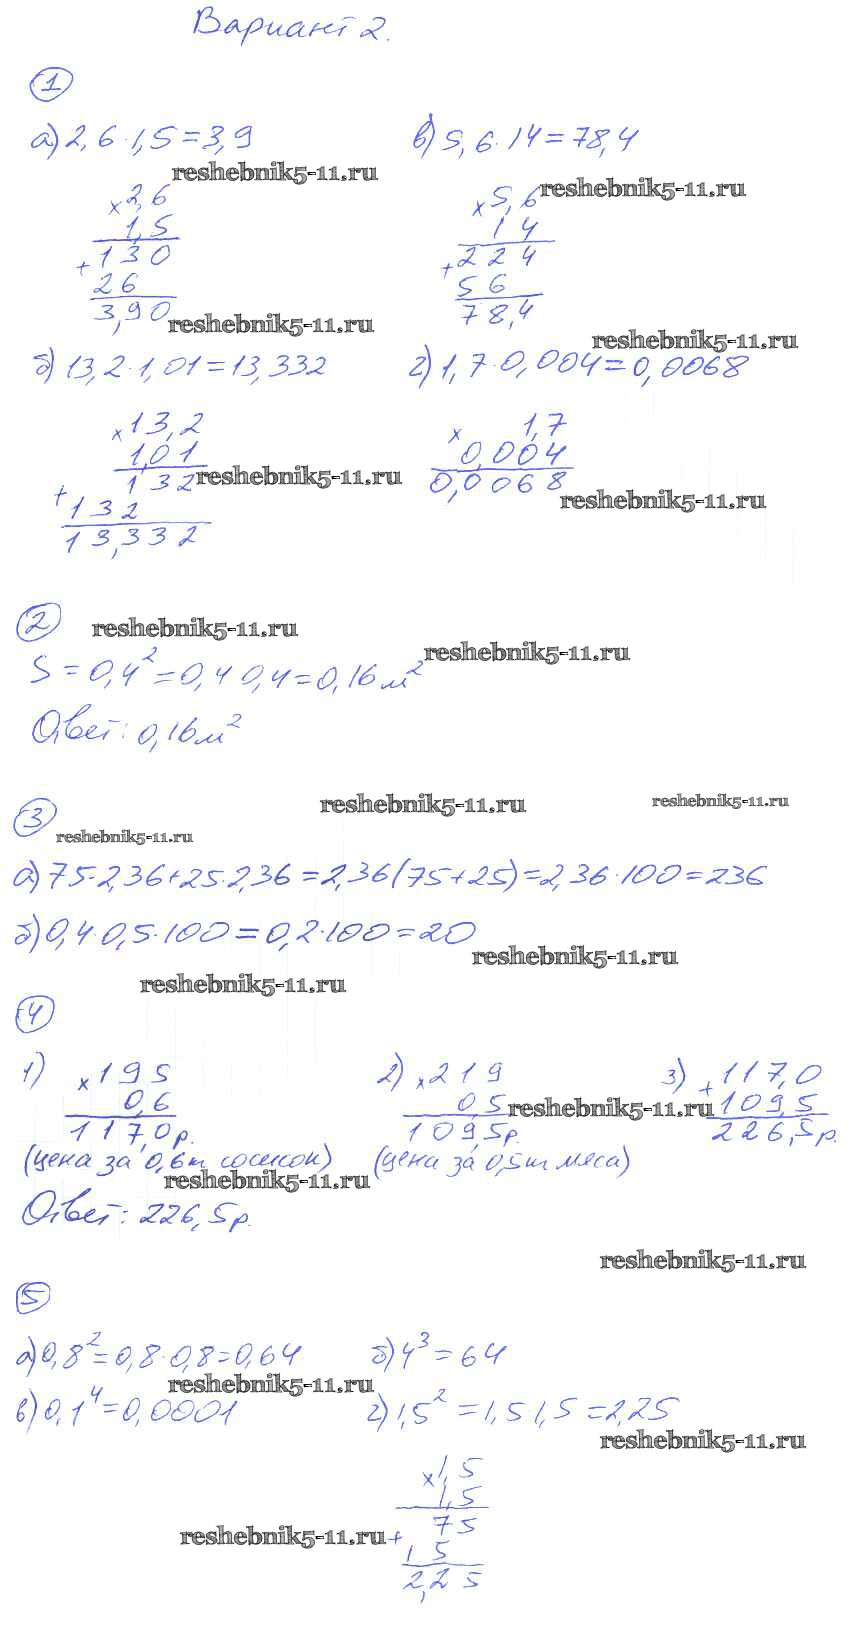 Вариант 2.
1
а) 2,6 · 1,5 = 3,9
в) 5,6 · 14 = 78,4
reshebnik5-11.ru
reshebnik5-11.ru
× 2,6
1,5
+ 130
26
3,90
× 5,6
14
+ 224
56
78,4
reshebnik5-11.ru
reshebnik5-11.ru
б) 13,2 · 1,01 = 13,332
г) 1,7 · 0,004 = 0,0068
× 13,2
1,01
+ 132
132
13,332
× 1,7
0,004
0,0068
reshebnik5-11.ru
reshebnik5-11.ru
2
reshebnik5-11.ru
reshebnik5-11.ru
S = 0,4² = 0,4 0,4 = 0,16 м²
Ответ: 0,16 м²
reshebnik5-11.ru
reshebnik5-11.ru
3
reshebnik5-11.ru
а) 75 · 2,36 + 25 · 2,36 = 2,36 (75 + 25) = 2,36 · 100 = 236
б) 0,4 · 0,5 · 100 = 0,2 · 100 = 20
reshebnik5-11.ru
reshebnik5-11.ru
4
1) × 195
0,6
117,0 р.
(цена за 0,6 кг сосисок)
2) × 219
0,5
109,5 р.
(цена за 0,5 кг мяса)
3) + 117,0
109,5
226,5 р.
reshebnik5-11.ru
reshebnik5-11.ru
Ответ: 226,5 р.
reshebnik5-11.ru
5
а) 0,8² = 0,8 · 0,8 = 0,64
б) 4³ = 64
reshebnik5-11.ru
в) 0,1⁴ = 0,0001
г) 1,5² = 1,5 1,5 = 2,25
reshebnik5-11.ru
× 1,5
1,5
+ 75
15
2,25
reshebnik5-11.ru